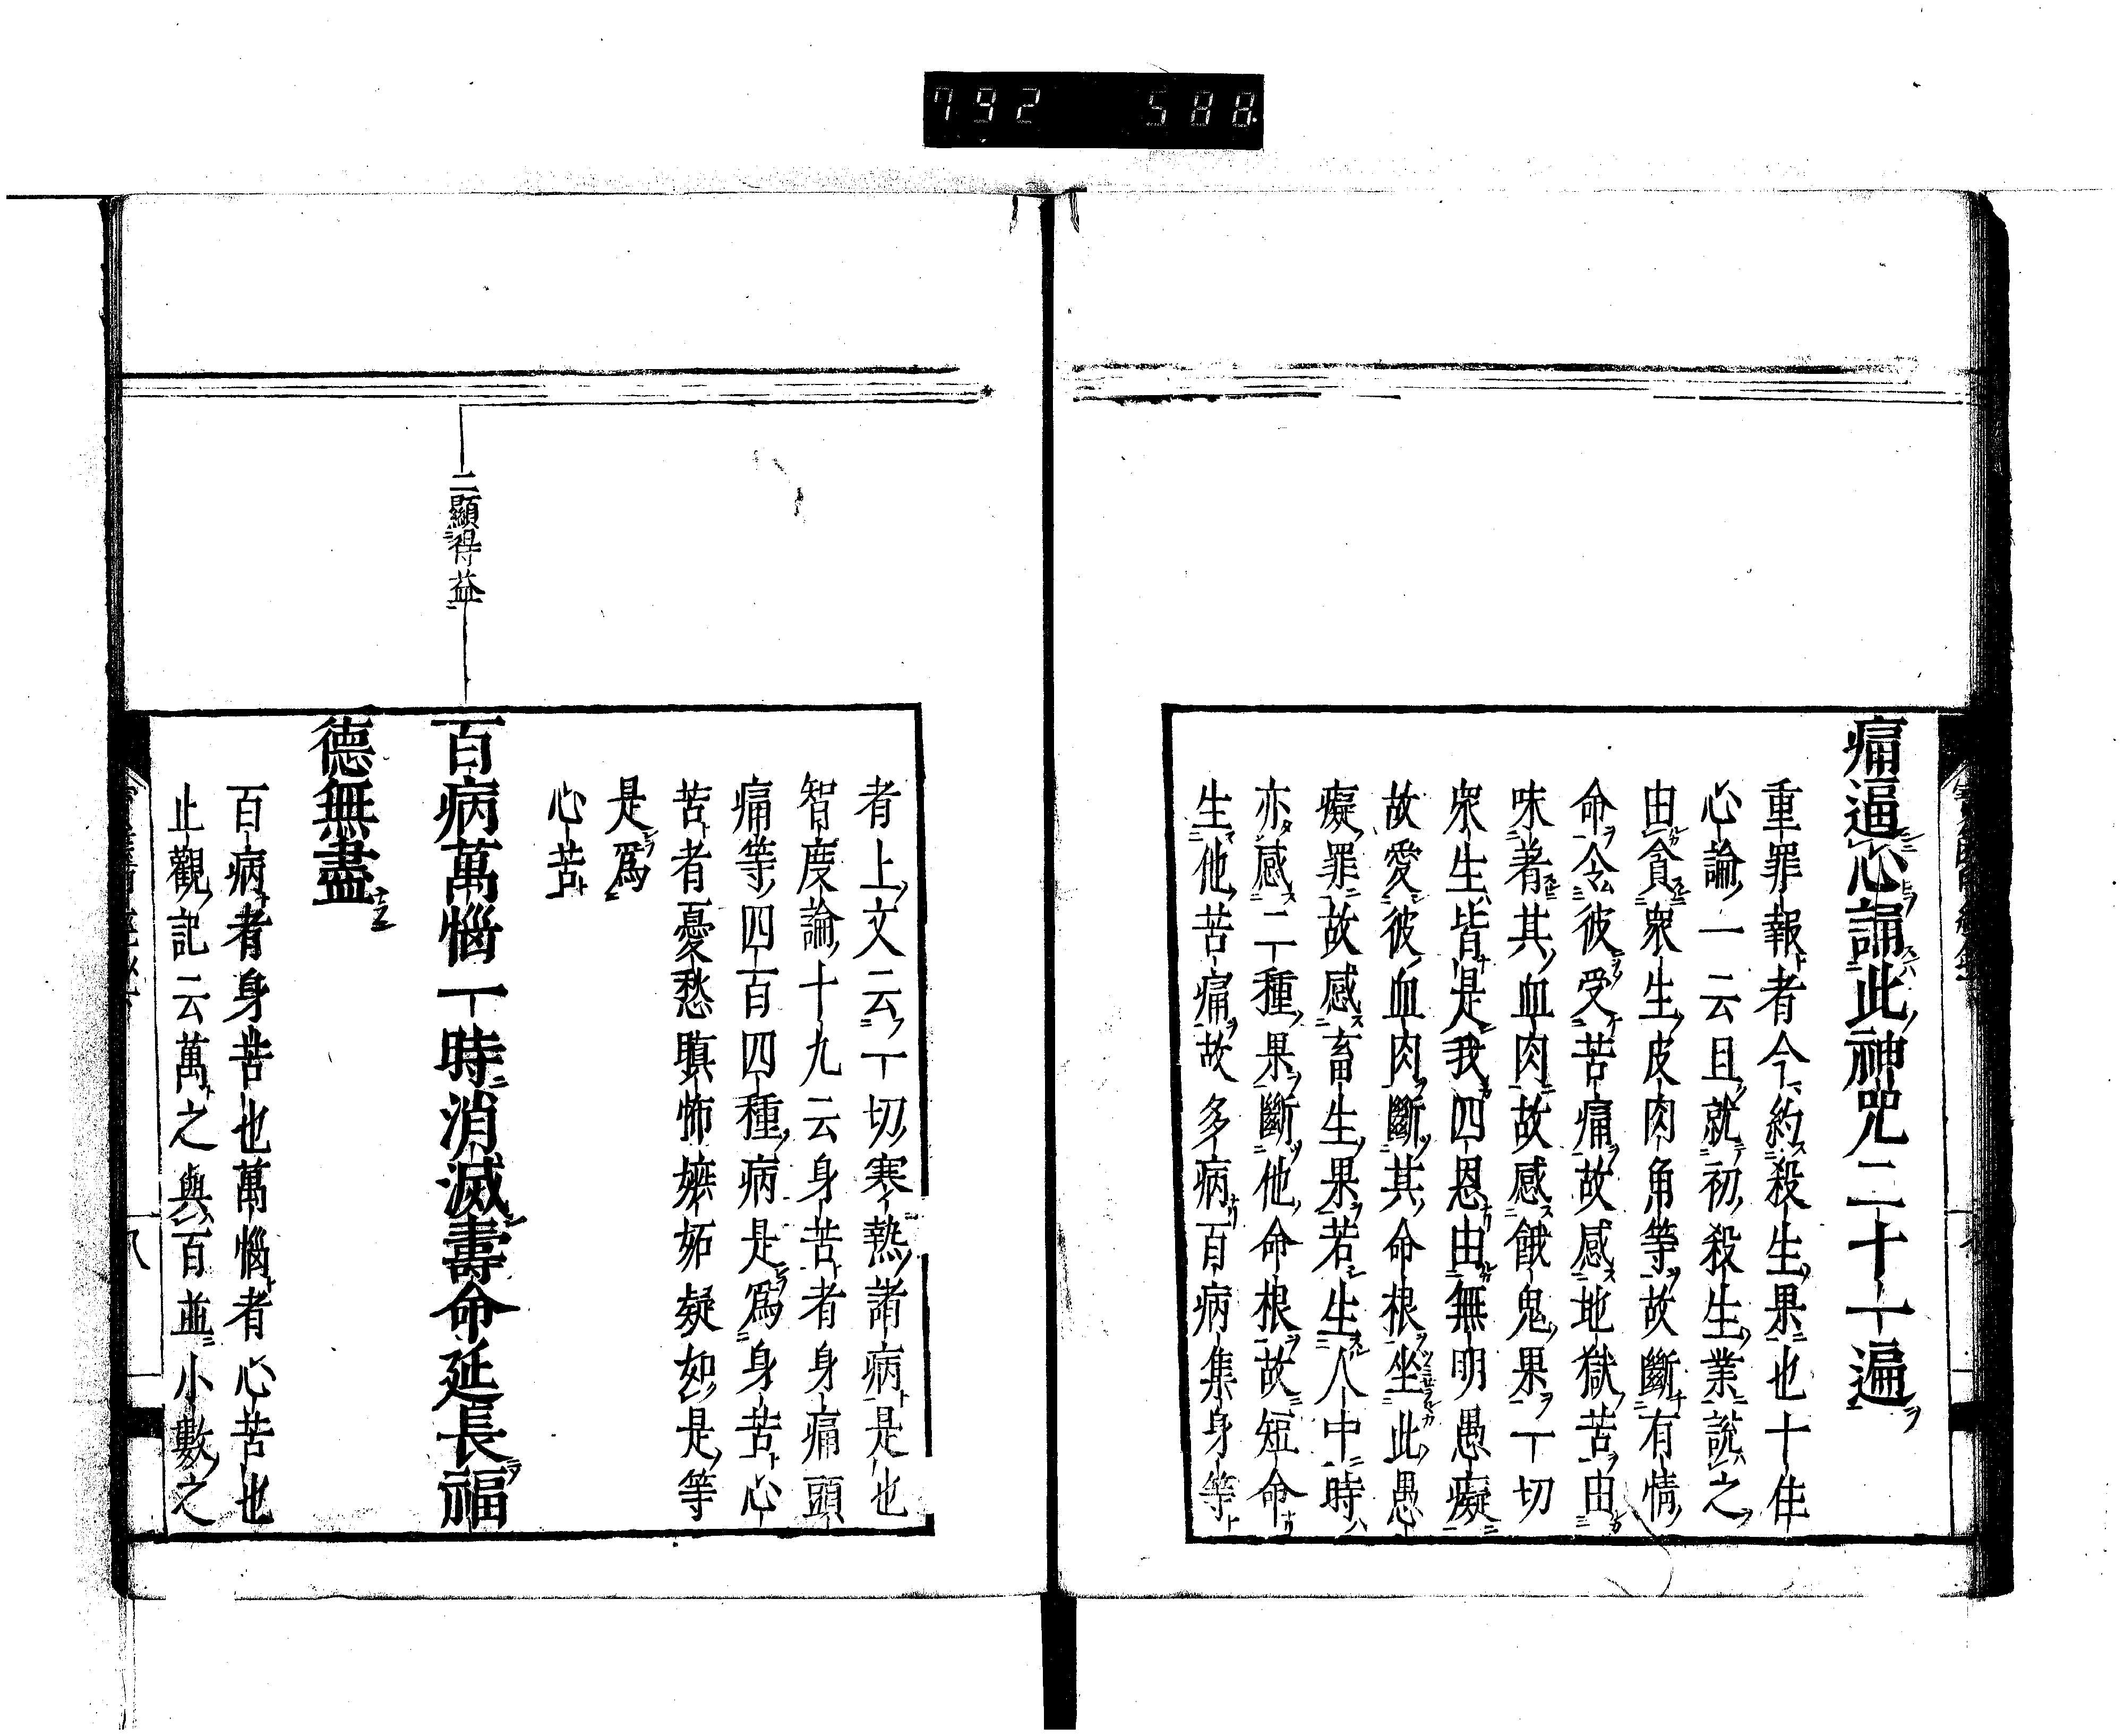 792 588
痛逼心誦此神咒二十一遍
重罪報者今約殺生果也十住
心論一云且就初殺生業說之
由貪衆生皮肉角等故斷有情
命令彼受苦痛故感地獄苦由
味著其血肉故感餓鬼果一切
衆生皆是我四恩由無明愚癡
故愛彼血肉斷其命根坐此愚
癡罪故感畜生果若生人中時
亦感二種果斷他命根故短命
生他苦痛故多病百病集身等
者上文云一切寒熱諸病是也
智度論十九云身苦者身痛頭
痛等四百四種病是爲身苦心
苦者憂愁瞋怖嫉妬疑如是等
是爲
心苦
二顯得益
百病萬惱一時消滅壽命延長福
德無盡
百病者身苦也萬惱者心苦也
止觀記云萬之與百並小數之
八